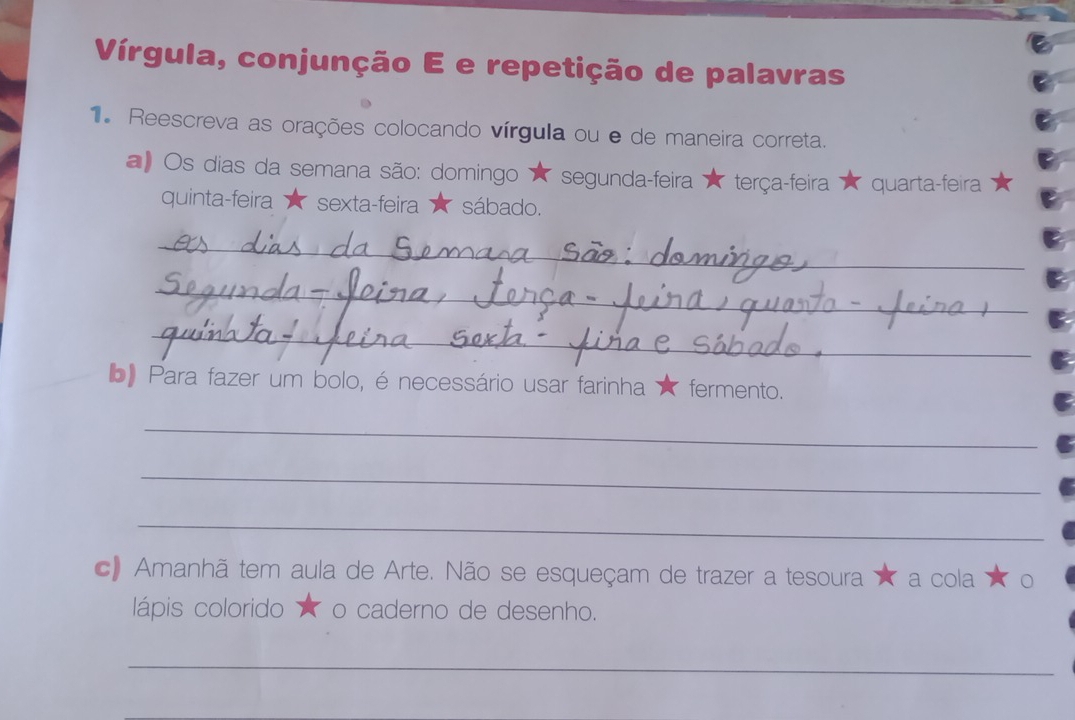 Vírgula, conjunção E e repetição de palavras
1. Reescreva as orações colocando vírgula ou e de maneira correta.
a) Os dias da semana são: domingo ★ segunda-feira ★ terça-feira ★ quarta-feira ★
quinta-feira ★ sexta-feira ★ sábado.
os dias da semana são: domingo,
Segunda-feira, terça-feira, quarta-feira,
quinta-feira sexta-fira e sábado.
b) Para fazer um bolo, é necessário usar farinha ★ fermento.
c) Amanhã tem aula de Arte. Não se esqueçam de trazer a tesoura ★ a cola ★ o
lápis colorido ★ o caderno de desenho.